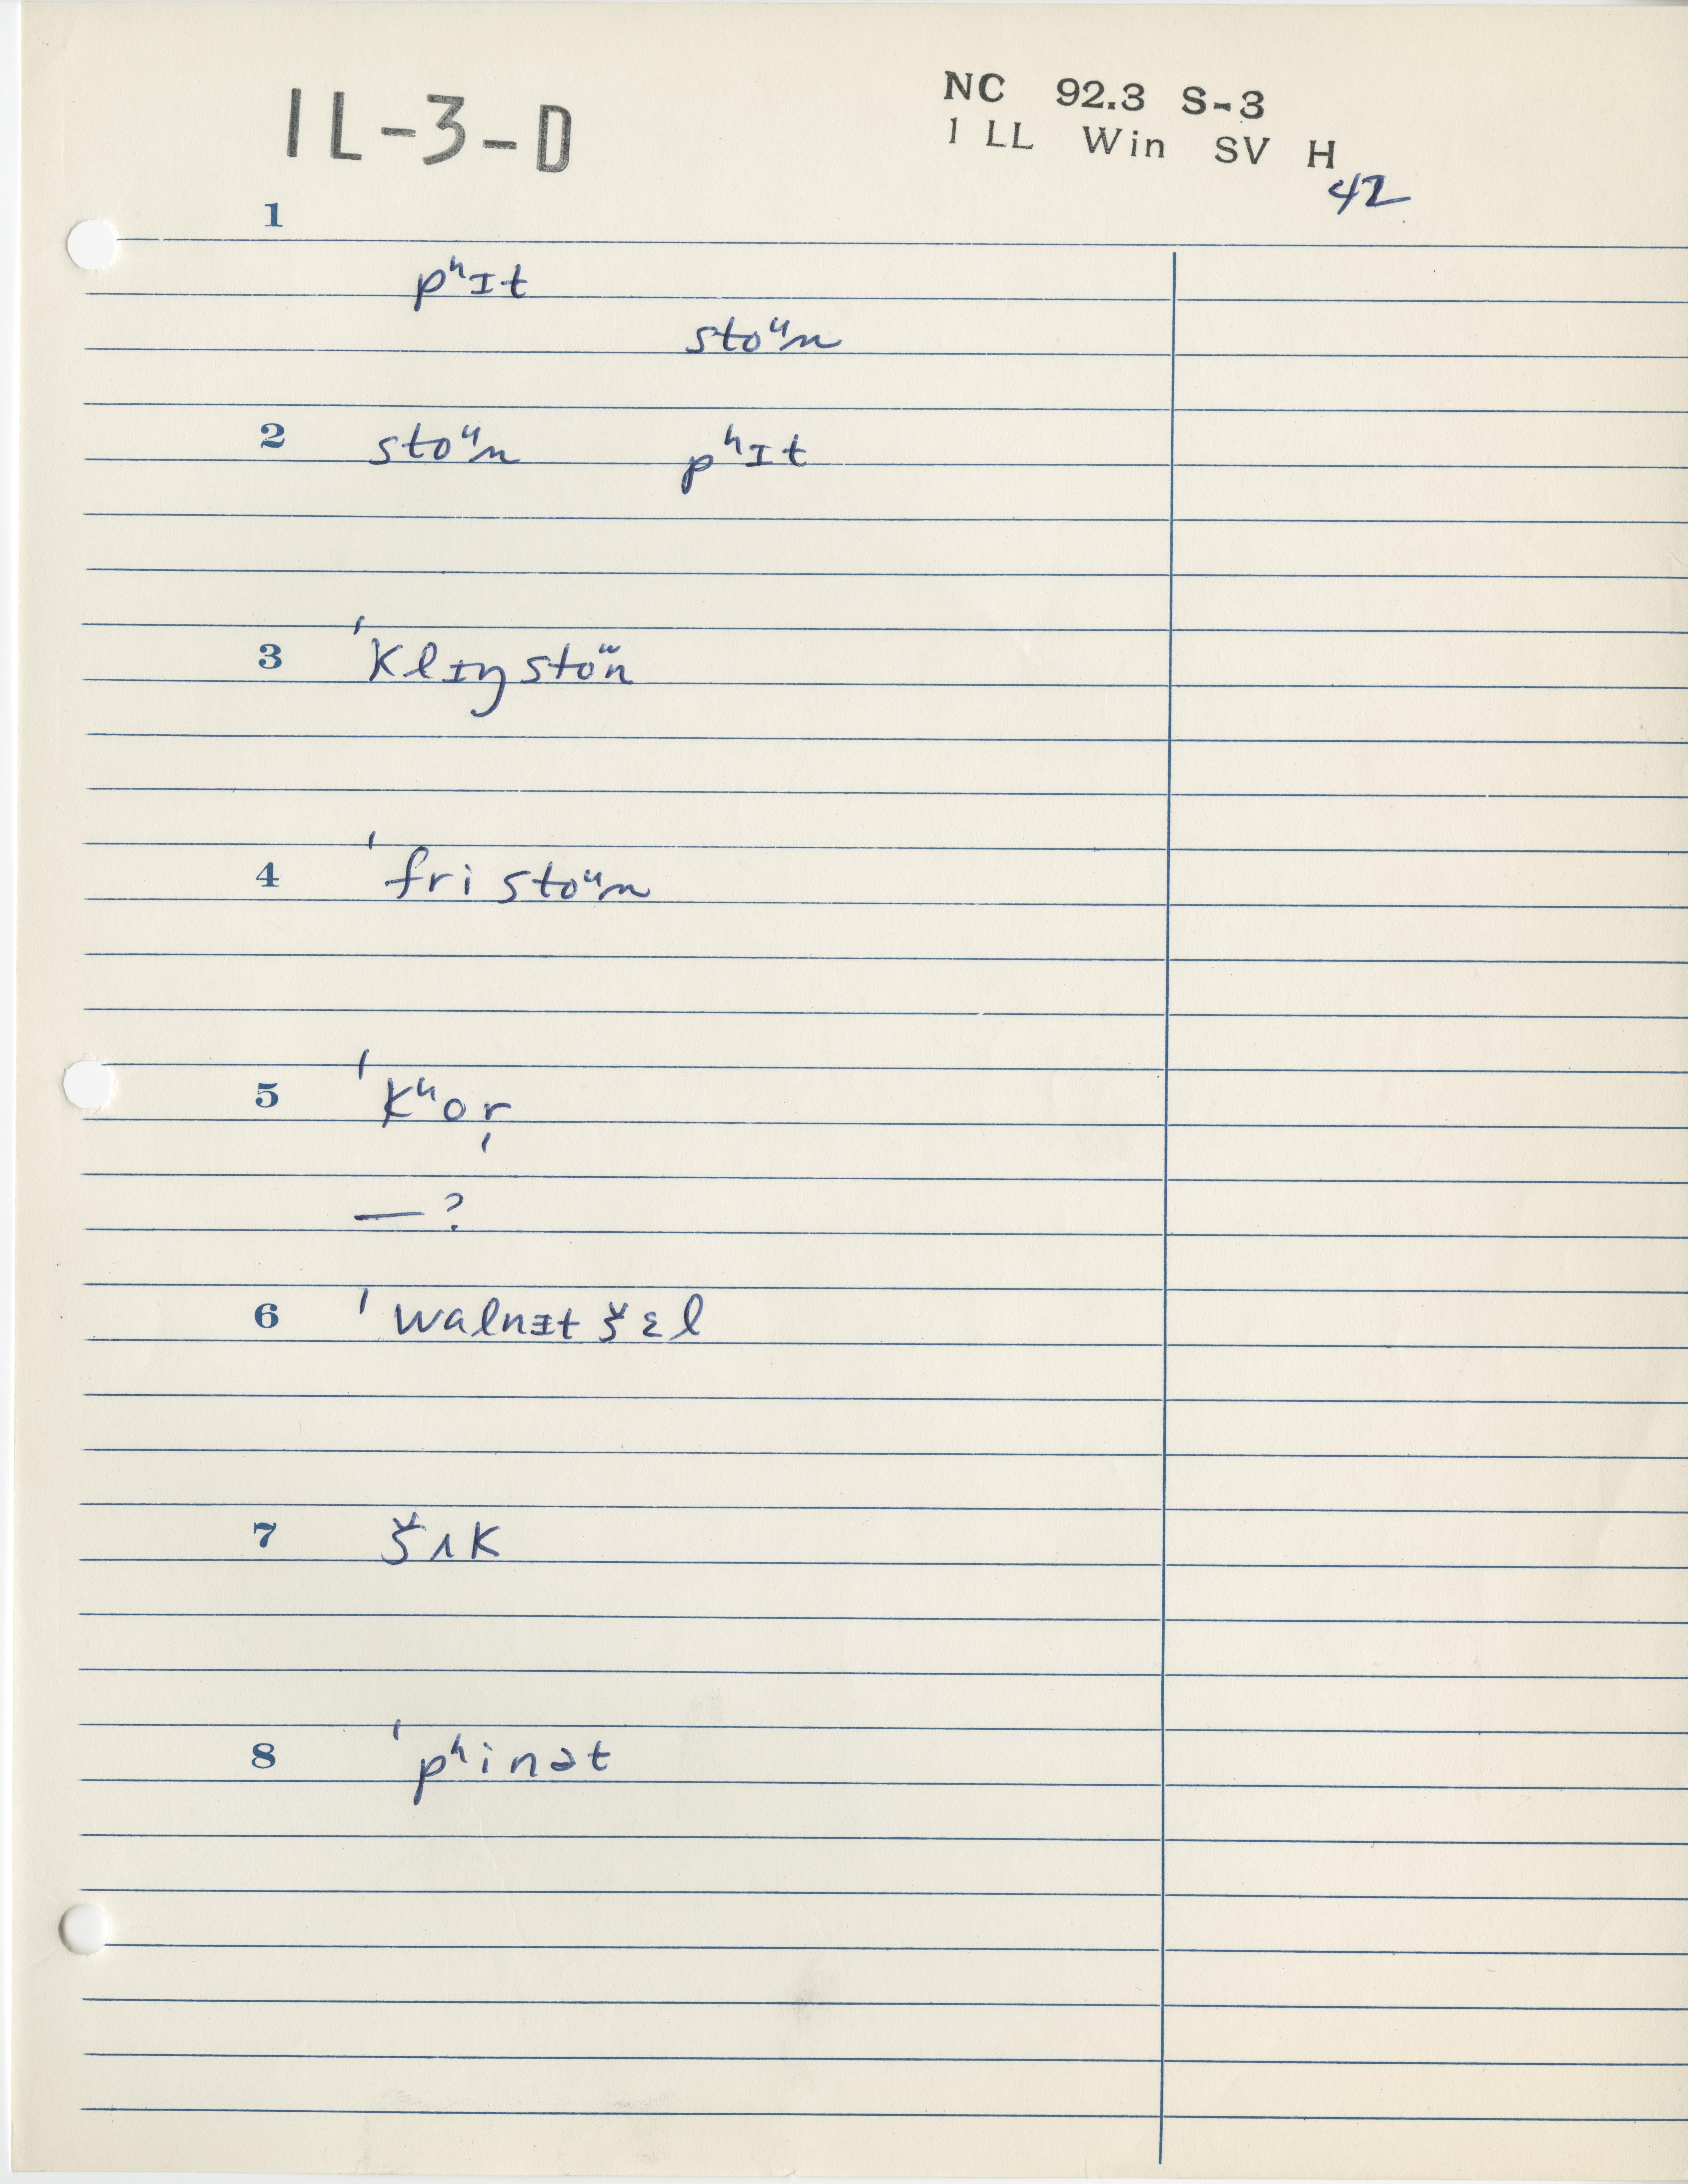 1L-3-D
NC 92.3 S-3
1 LL Win SV H
42
1
pʰɪt
stoᵘn
2 stoᵘn pʰɪt
3 ˈklɪŋstoᵘn
4 ˈfristoᵘn
5 ˈkʰor̩
—?
6 ˈwalnɪ̵tš̌ɛl
7 šʌk
8 ˈpʰinət